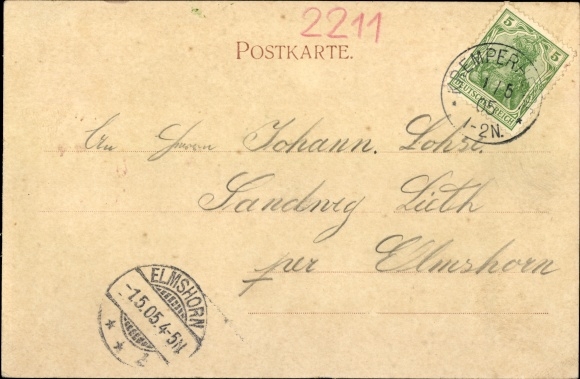 2211
POSTKARTE.
5 5
DEUTSCHES REICH
KREMPERH
1/5
05
1-2N.
An Herrn Johann. Lohse.
Sandweg Lieth
per Elmshorn
ELMSHORN
-1.5.05.4-5N
* * 2